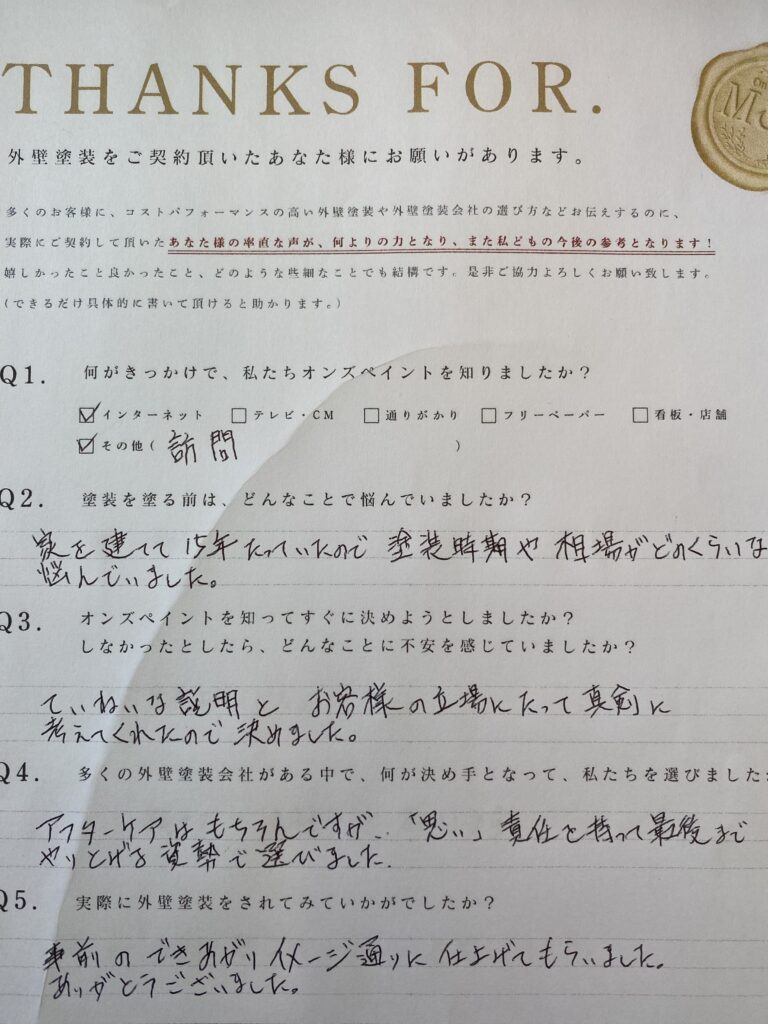 THANKS FOR.
MJ
外壁塗装をご契約頂いたあなた様にお願いがあります。
多くのお客様に、コストパフォーマンスの高い外壁塗装や外壁塗装会社の選び方などお伝えするのに、
実際にご契約して頂いたあなた様の率直な声が、何よりの力となり、また私どもの今後の参考となります！
嬉しかったこと良かったこと、どのような些細なことでも結構です。是非ご協力よろしくお願い致します。
(できるだけ具体的に書いて頂けると助かります。)
Q1. 何がきっかけで、私たちオンズペイントを知りましたか？
☑インターネット □テレビ・CM □通りがかり □フリーペーパー □看板・店舗
☑その他( 訪問 )
Q2. 塗装を塗る前は、どんなことで悩んでいましたか？
家を建てて15年たっていたので 塗装時期や 相場がどのくらいな
悩んでいました。
Q3. オンズペイントを知ってすぐに決めようとしましたか？
しなかったとしたら、どんなことに不安を感じていましたか？
ていねいな説明と お客様の立場にたって真剣に
考えてくれたので決めました。
Q4. 多くの外壁塗装会社がある中で、何が決め手となって、私たちを選びました
アフターケアはもちろんですが、「思い」責任を持って最後まで
やりとげる姿勢で選びました.
Q5. 実際に外壁塗装をされてみていかがでしたか？
事前のできあがりイメージ通りに仕上げてもらいました。
ありがとうございました。